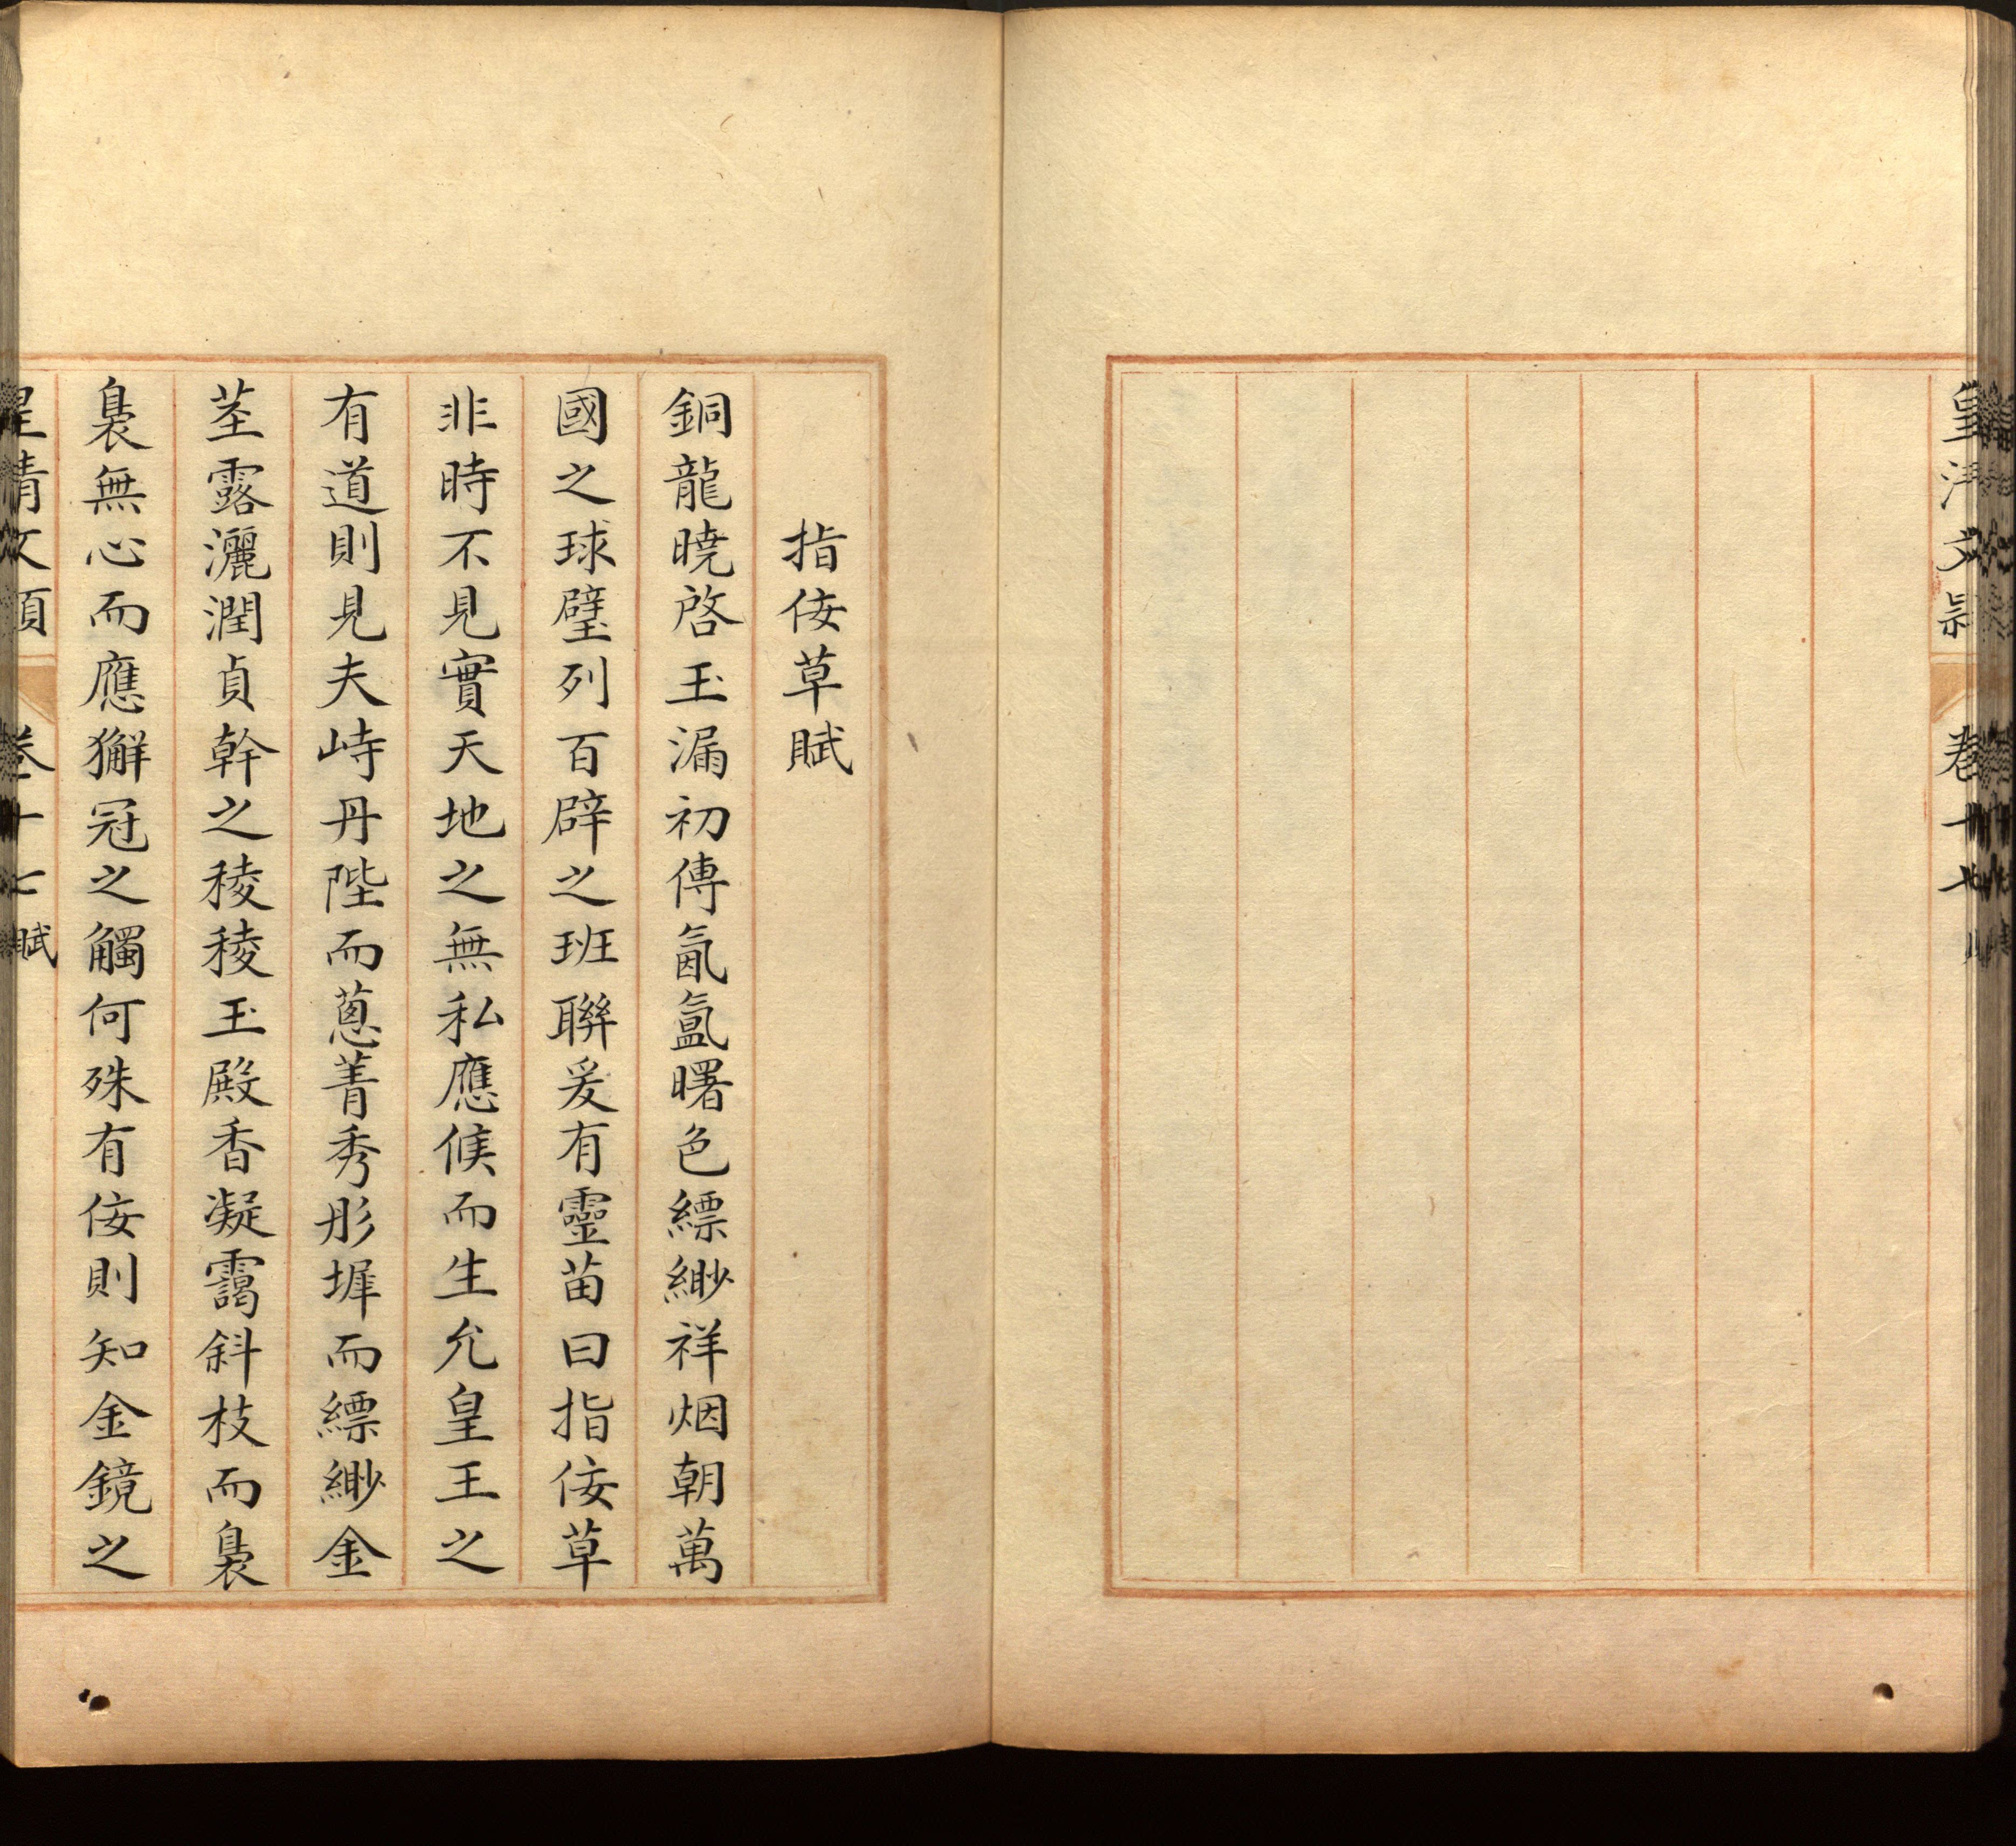 皇清文頴 卷十七
指佞草賦
銅龍曉啓玉漏初傳氤氳曙色縹緲祥烟朝萬
國之球璧列百辟之班聨爰有靈苗曰指佞草
非時不見實天地之無私應候而生允皇王之
有道則見夫峙丹陛而蔥菁秀彤墀而縹緲金
莖露灑潤貞幹之稜稜玉殿香凝靄斜枝而裊
裊無心而應獬冠之觸何殊有佞則知金鏡之
皇清文頴 卷十七 賦